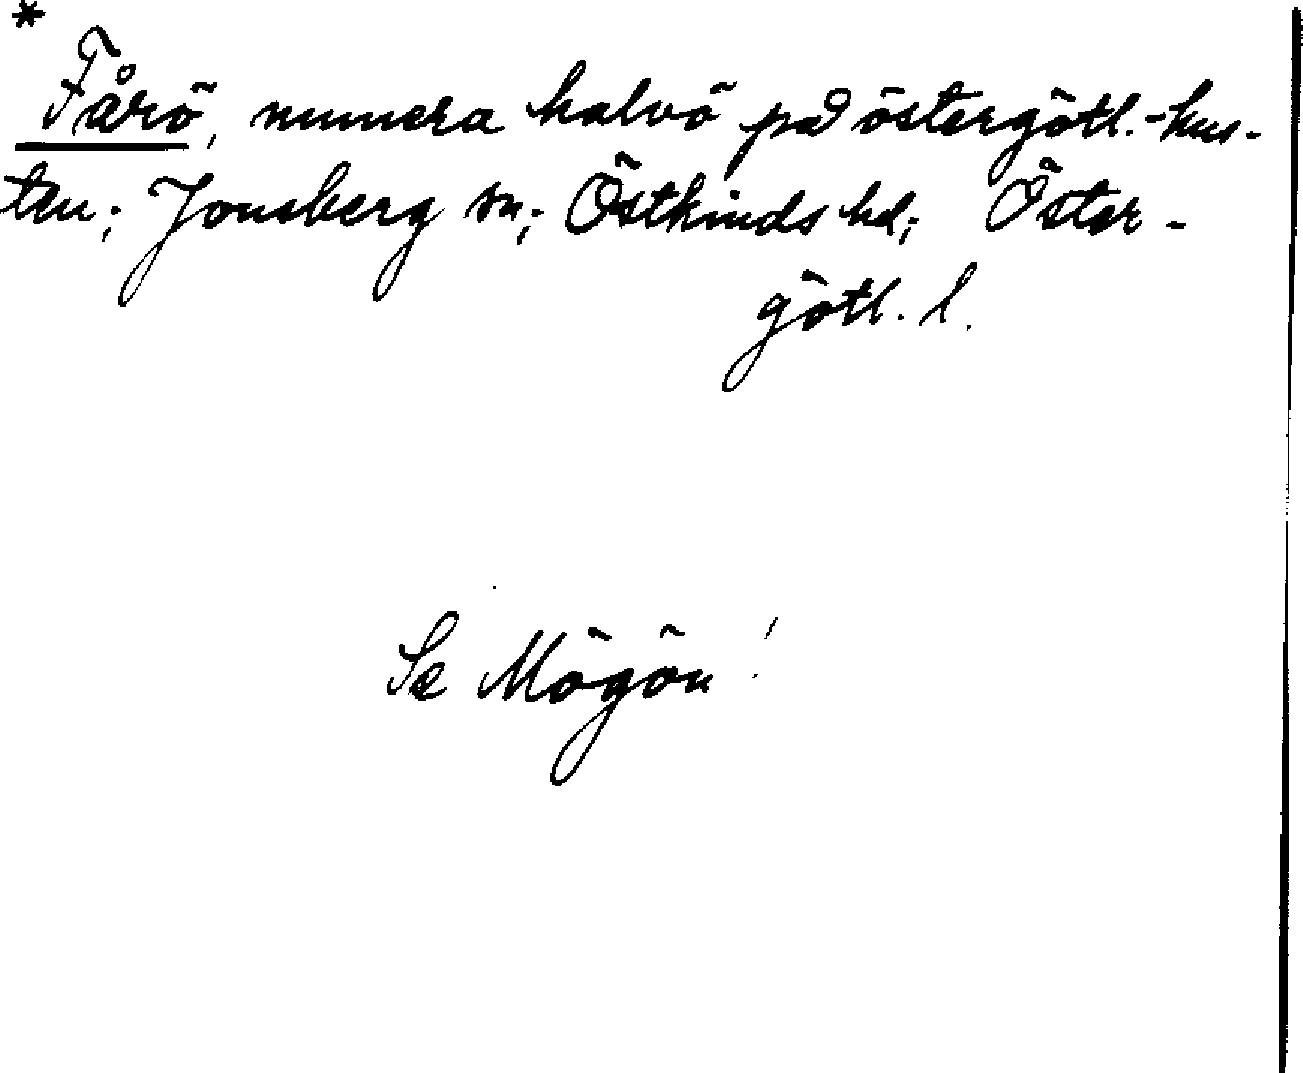 *
Fårö, numera halvö på östergötl.-kus-
ten; Jonsberg sn; Östkinds hd; Öster-
götl. l.
Se Mögön!